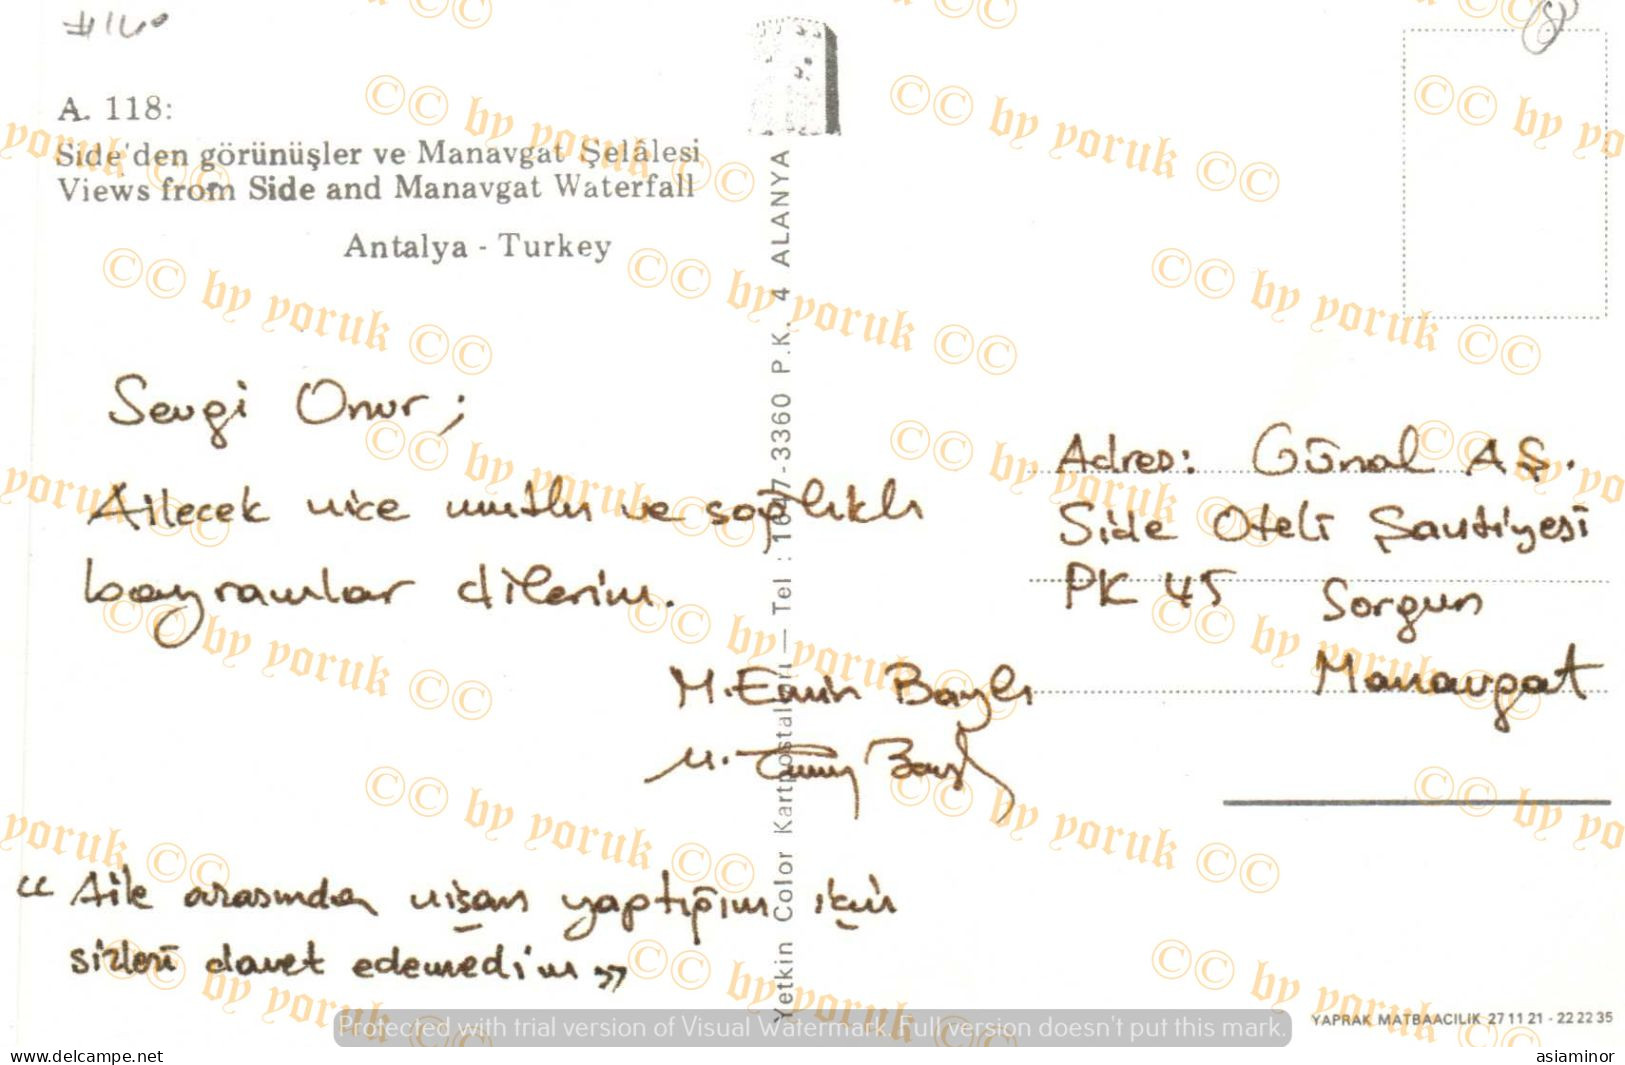 #160
A. 118:
Side'den görünüşler ve Manavgat Şelâlesi
Views from Side and Manavgat Waterfall
Antalya - Turkey
Sevgi Onur;
Ailecek nice mutlu ve sağlıklı
bayramlar dilerim.
M. Emin Baylı
"Aile arasında nişan yaptığım için
sizleri davet edemedim"
Yetkin Color Kartpostalları — Tel : 1647-3360 P.K. 4 ALANYA
Adres: Günal AŞ.
Side Oteli Şantiyesi
PK 45 Sorgun
Manavgat
YAPRAK MATBAACILIK 27 11 21 - 22 22 35
©© by yoruk ©©
Protected with trial version of Visual Watermark. Full version doesn't put this mark.
www.delcampe.net
asiaminor